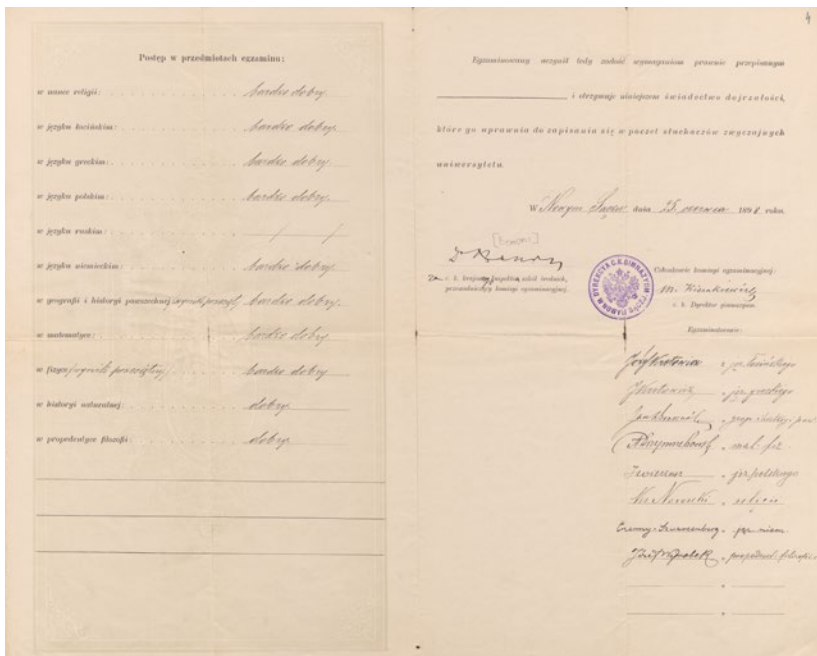 4
Postęp w przedmiotach egzaminu:
w nauce religii: bardzo dobry.
w języku łacińskim: bardzo dobry.
w języku greckim: bardzo dobry.
w języku polskim: bardzo dobry.
w języku ruskim: / /
w języku niemieckim: bardzo dobry.
w geografii i historyi powszechnej bardzo dobry.
w matematyce: bardzo dobry
w fizyce bardzo dobry
w historyi naturalnej: dobry.
w propedeutyce filozofii: dobry.
Egzaminowany uczynił tedy zadość wymaganiom prawnie przepisanym
i otrzymuje niniejszem świadectwo dojrzałości,
które go uprawnia do zapisania się w poczet słuchaczów zwyczajnych
uniwersytetu.
W Nowym Sączu dnia 25 czerwca 1898 roku.
c. k. krajowy inspektor szkół średnich,
przewodniczący komisyi egzaminacyjnej.
DYREKCYA C. K. GIMNAZYUM W NOWYM SĄCZU
Członkowie komisyi egzaminacyjnej:
c. k. Dyrektor gimnazyum.
Egzaminatorowie:
z jęz. łacińskiego
" jęz. greckiego
" mat. fiz.
" jęz. polskiego
" religii
" jęz. niem.
" propedeut. filozofii